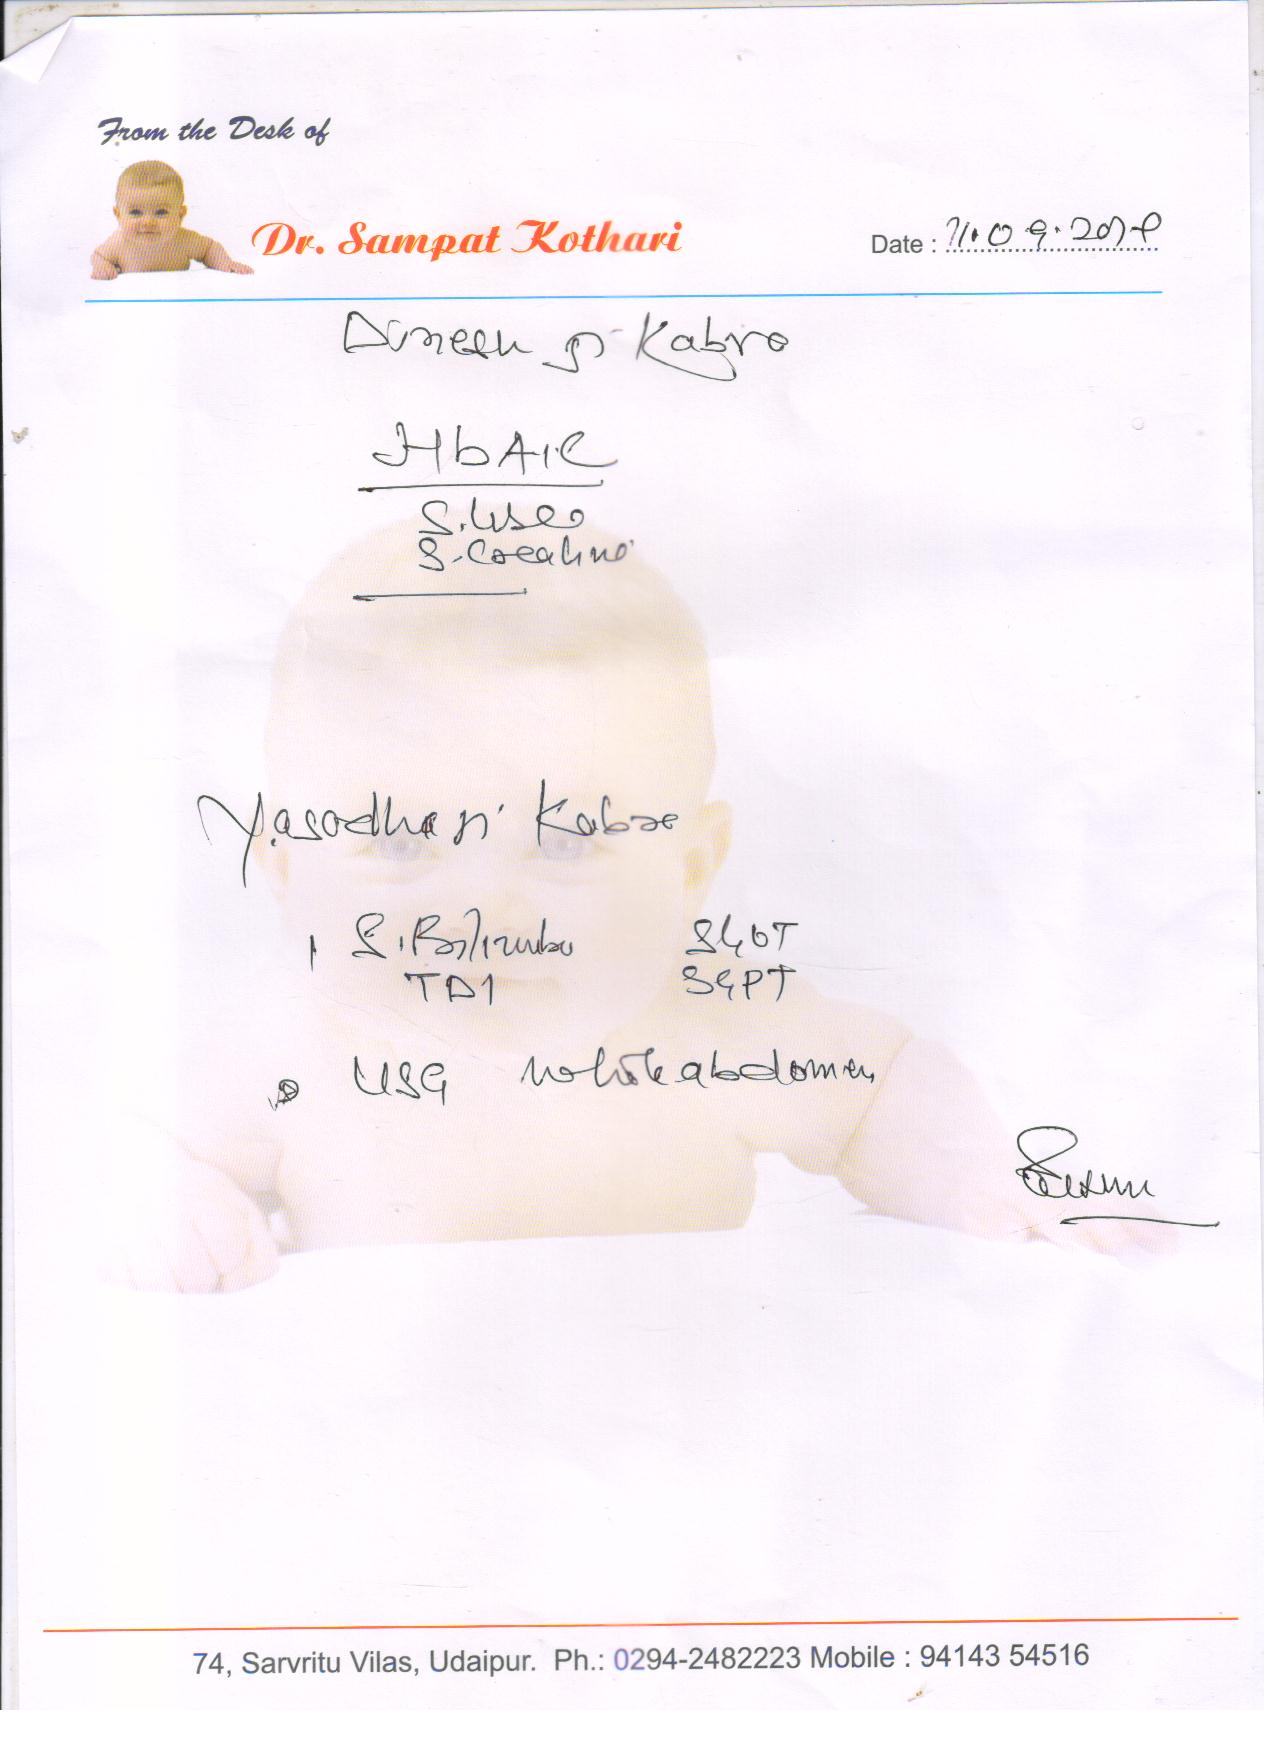 From the Desk of
Dr. Sampat Kothari
Date : 11.09.201
Dinesh ji Kabra
HbA1C
S. Urea
S. Creatinine
Yasodha ji Kabra
1 S. Bilirubin SGOT
TDI SGPT
2 USG whole abdomen
74, Sarvritu Vilas, Udaipur. Ph.: 0294-2482223 Mobile : 94143 54516